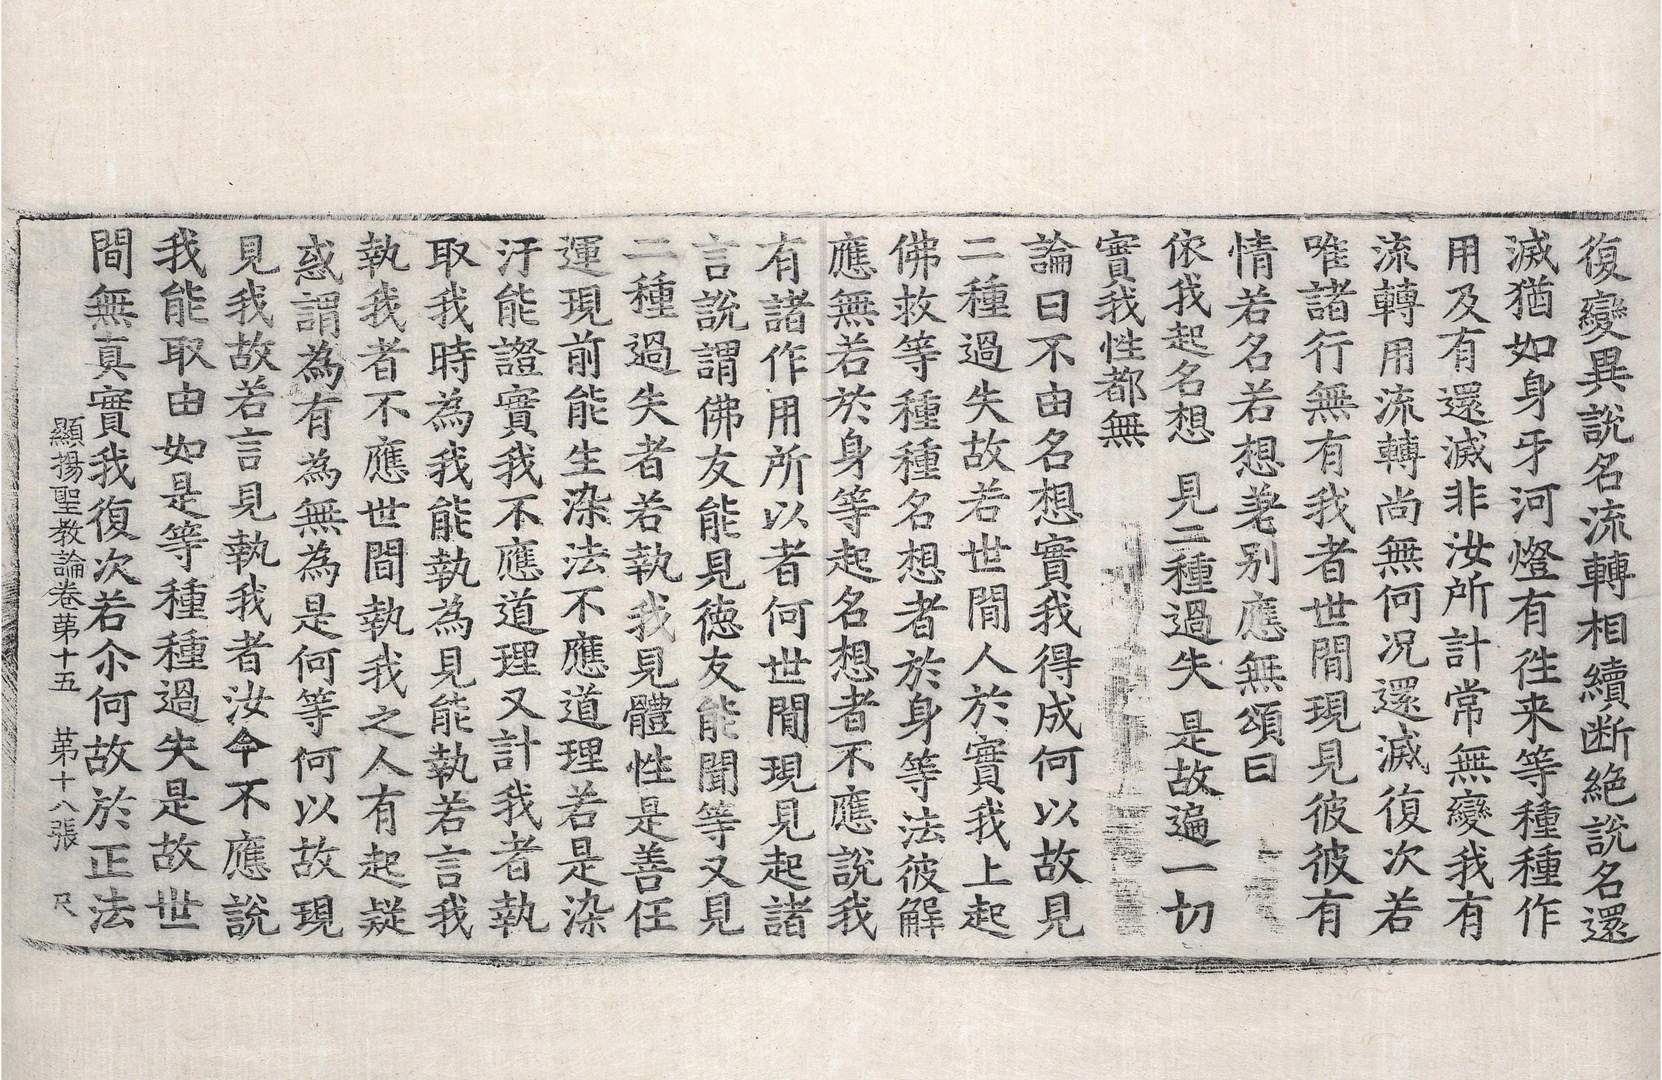 復變異說名流轉相續断絶說名還
滅猶如身牙河燈有往来等種種作
用及有還滅非汝所計常無變我有
流轉用流轉尚無何况還滅復次若
唯諸行無有我者世間現見彼彼有
情若名若想差别應無頌曰
依我起名想　見二種過失　是故遍一切
實我性都無
論曰不由名想實我得成何以故見
二種過失故若世間人於實我上起
佛救等種種名想者於身等法彼解
應無若於身等起名想者不應說我
有諸作用所以者何世間現見起諸
言說謂佛友能見徳友能聞等又見
二種過失者若執我見體性是善任
運現前能生染法不應道理若是染
汙能證實我不應道理又計我者執
取我時為我能執為見能執若言我
執我者不應世間執我之人有起疑
惑謂為有為無為是何等何以故現
見我故若言見執我者汝今不應說
我能取由如是等種種過失是故世
間無真實我復次若尒何故於正法
顯揚聖教論卷苐十五　苐十八張　尺